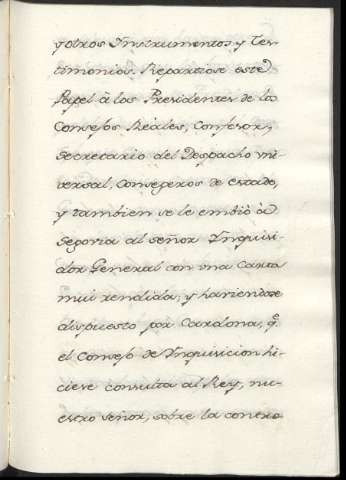 y otros Ynstrumentos y Tes-
timonios. Repartiose este
Papel â los Presidentes de los
Consejos Reales, Confesor,
Secretario del Despacho uni-
versal, Consegeros de estado,
y tambien se le embiò à
Segovia al señor Ynquisi-
dor General con una Carta
mui rendida, y haviendose
dispuesto por Cardona, q.ᵉ
el Consejo de Ynquisicion hi-
ciese consulta al Rey, nu-
estro señor, sobre la contro